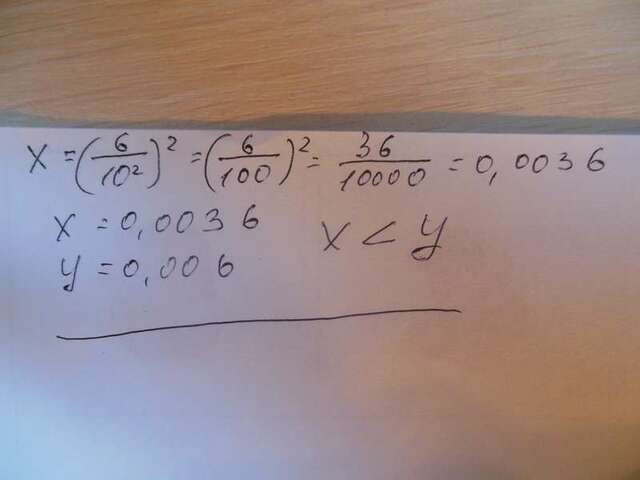 x = (6/10²)² = (6/100)² = 36/10000 = 0,0036
x = 0,0036
x < y
y = 0,006